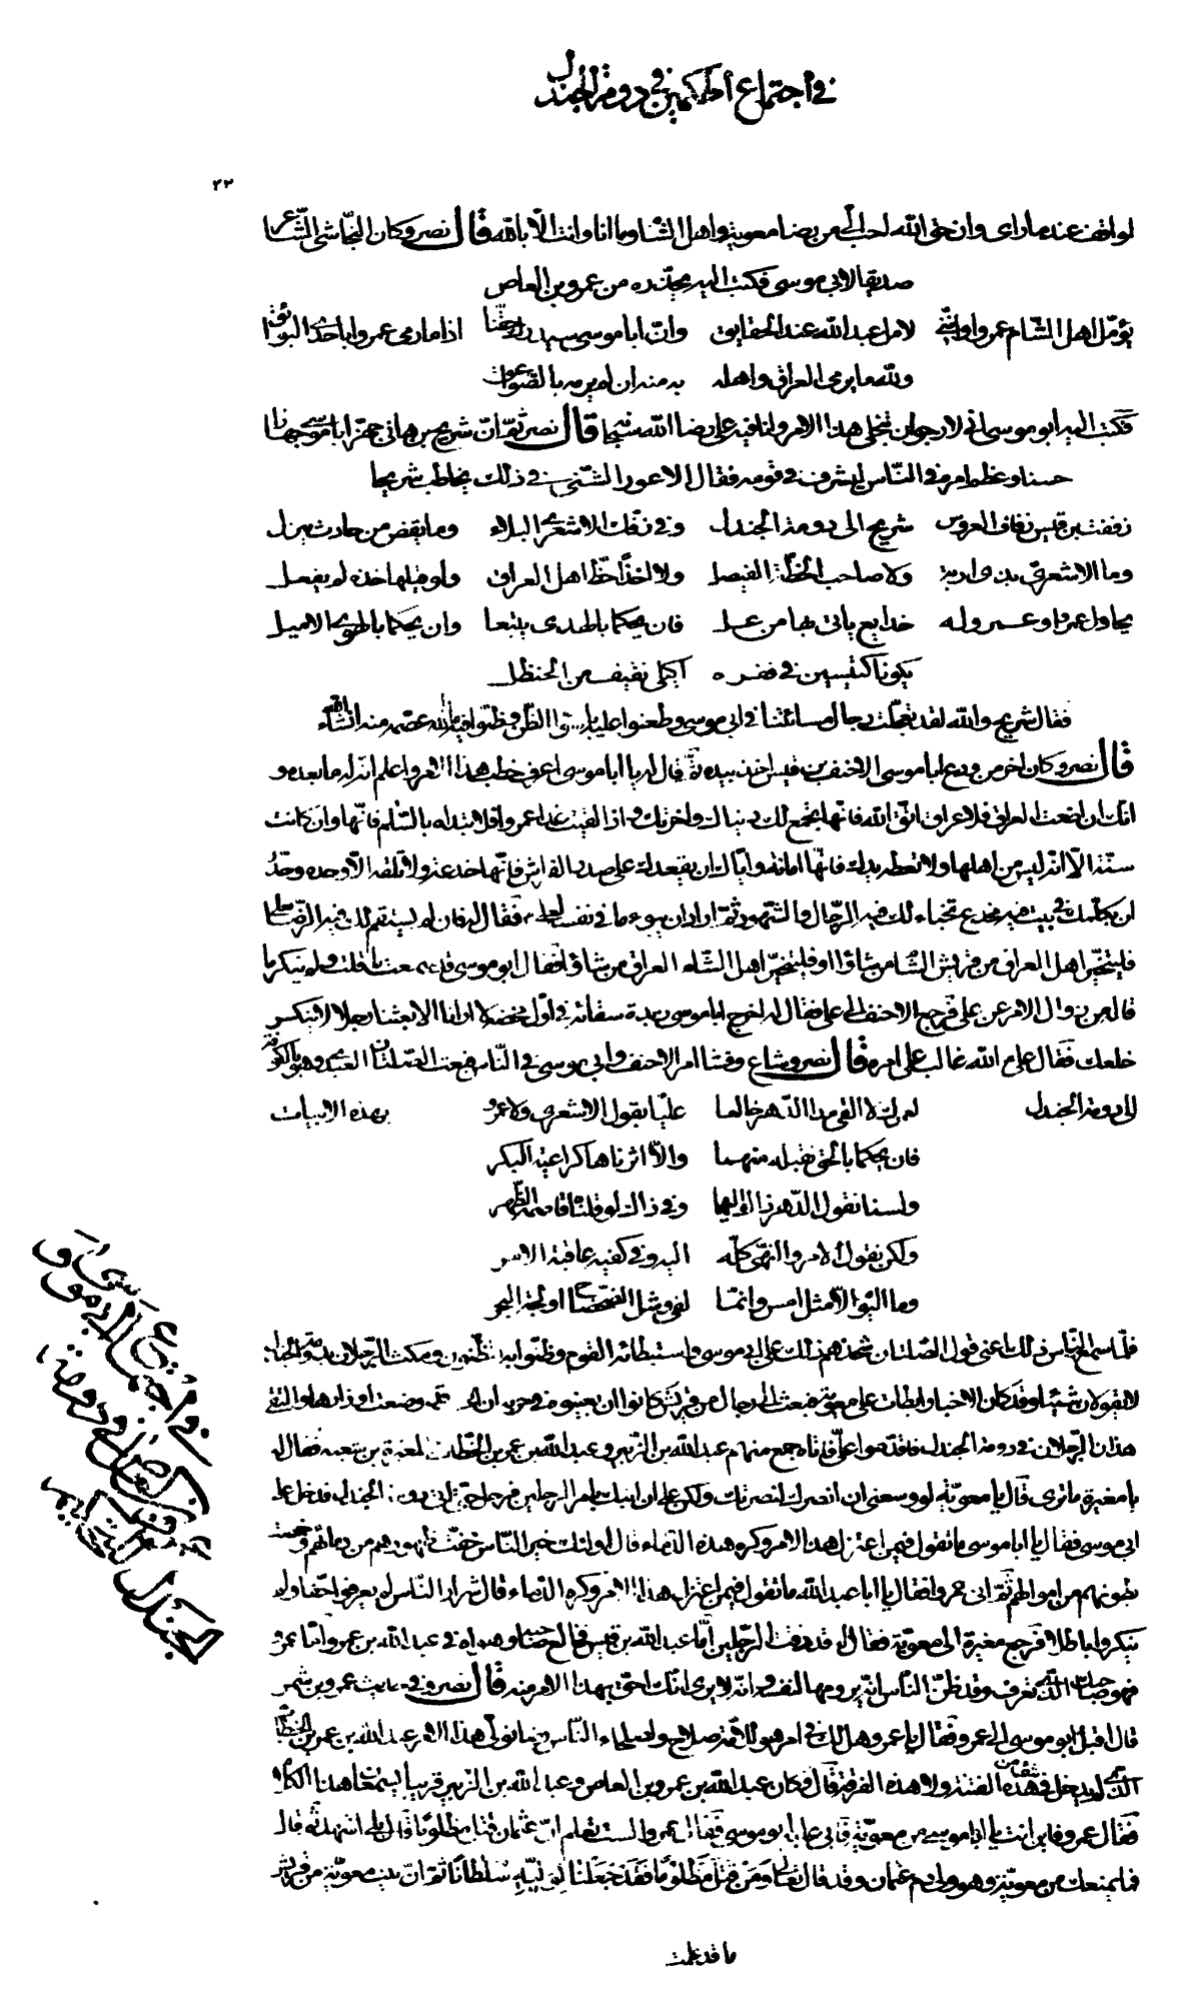 في اجتماع الحكمين في دومة الجندل
٢٢
لواقف عند ما رأى وان حق الله لاحب الي من رضا معوية واهل الشام وما انا وانت الا بالله قال نصر وكان النجاشي الشاعر
صديقا لابي موسى فكتب اليه يحذره من عمرو بن العاص
يؤمل اهل الشام عمروا وانني لامل عبدالله عند الحقايق وان ابا موسى سيدرك حقنا اذا ما رمى عمروا باحدى البوائق
ولله ما يرمى العراق واهله به منه ان لم يرمه بالصواعق
فكتب اليه ابو موسى اني لارجو ان ينجلي هذا الامر وانا فيه على رضا الله سبحانه قال نصر ثم ان شريح بن هاني جهز ابا موسى جهازا
حسنا وعظم امره في الناس ليشرف في قومه فقال الاعور الشني في ذلك يخاطب شريحا
زففت بن قيس زفاف العروس شريح الى دومة الجندل وفي زفك الاشعري البلاء وما يقض من حادث ينزل
وما الاشعري بذي اربة ولا صاحب الخطة الفيصل ولا اخذا حظ اهل العراق ولو قيلها خذه لم يفعل
يحاول عمروا وعمرو له خدايع ياتي بها من عل فان يحكما بالهدى يتبعا وان يحكما بالهوى الاميل
يكونا كتيسين في قفره اكيلى نقيف من الحنظل
فقال شريح والله لقد تعجلت رجال مسائتنا في ابي موسى وطعنوا عليه الظن وظنوا فيه ما الله عصمه منه انشاء الله
قال نصر وكان اخر من ودع ابا موسى الاحنف بن قيس اخذ بيده ثم قال له يا ابا موسى اعرف خطب هذا الامر واعلم ان له ما بعده و
انك ان اضعت العراق فلا عراق اتق الله فانها يجمع لك دنياك واخرتك واذا لقيت غدا عمروا فلا تبتداه بالسلم فانها وان كانت
سنة الا انه ليس من اهلها ولا تعطه يدك فانها امانة واياك ان يقعدك على صدر الفراش فانها خدعة ولا تلقه الا وحده وحذر
ان يكلمك في بيت فيه مخدع تخباء لك فيه الرجال والشهود ثم اراد ان يبوء ما في نفسه لعلي فقال له فان لم يستقم لك عمرو الرضا بعلي
فليتخير اهل العراق من قريش الشام من شاؤا او فليتخير اهل الشام العراق من شاؤا فقال ابو موسى قد سمعت ما قلت ولم ينكر ما
قاله من زوال الامر عن علي فرجع الاحنف الى علي فقال له اخرج ابا موسى زبدة سقائه في اول مخضه لا ارانا الا بعثنا رجلا لا ينكر
خلعك فقال علي الله غالب على امره قال نصر وشاع وفشا امر الاحنف وابي موسى في الناس فبعث الصلتان العبدي وهو بالكوفة
الى دومة الجندل لعمرك لا القى مدا الدهر خالعا عليا بقول الاشعري ولا عمرو بهذه الابيات
فان يحكما بالحق نقبله منهما والا اثرناها كراغية البكر
ولسنا نقول الدهر ذاك اليهما وفي ذاك لو قلناه قاصمة الظهر
ولكن نقول الامر والنهي كله اليه وفي كفيه عاقبة الامر
وما اليوم الا مثل امس واننا لفي وشل الضحضاح او لجة البحر
فلما سمع الناس ذلك اعني قول الصلتان شحذهم ذلك على ابي موسى واستبطائه القوم وظنوا به الظنون ومكث الرجلان بدومة الجندل
لا يقولان شيئا وقد كان الاخبار ابطات على معوية فبعث الى رجال من قريش كانوا ان يعينوه في حربه ان الحرب قد وضعت اوزارها والتقى
هذان الرجلان في دومة الجندل فاقدموا علي فاتاه جمع منهم عبدالله بن الزبير وعبدالله بن عمر بن الخطاب المغيرة بن شعبة فقال له
يا مغيرة ما ترى قال يا معوية لو وسعني ان انصرك لنصرتك ولكن علي ان اتيك بامر الرجلين فرحل حتى اتى دومة الجندل فدخل على
ابي موسى فقال يا ابا موسى ما تقول فيمن اعتزل هذا الامر وكره هذه الدماء قال اولئك خير الناس خفت ظهورهم من دمائهم وخمصت
بطونهم من اموالهم ثم اتى عمروا فقال يا ابا عبدالله ما تقول فيمن اعتزل هذا الامر وكره الدماء قال شرار الناس لم يعرفوا حقا ولم
ينكروا باطلا فرجع مغيرة الى معوية فقال له قد ذقت الرجلين اما عبدالله بن قيس فخالع صاحبه وهواه في عبدالله بن عمر واما عمرو
فهو صاحبك الذي تعرف وقد ظن الناس انه يرومها لنفسه وانه لا يرى انك احق بهذا الامر منه قال نصر وفي حديث عمرو بن شمر
قال اقبل ابو موسى الى عمرو فقال يا عمرو هل لك في امر هو للامة صلاح ولصلحاء الناس رضا نولى هذا الامر عبدالله بن عمر بن الخطاب
الذي لم يدخل في شيء من هذه الفتنة ولا هذه الفرقة قال وكان عبدالله بن عمرو بن العاص وعبدالله بن الزبير قريبا يسمعان هذا الكلام
فقال عمرو فاين انت يا ابا موسى من معوية فابى عليه ابو موسى فقال عمرو الست تعلم ان عثمان قتل مظلوما قال بلى اشهد ثم قال
فما يمنعك من معوية وهو ولي دم عثمان وقد قال تعالى ومن قتل مظلوما فقد جعلنا لوليه سلطانا ثم ان بيت معوية من قريش
ما قد علمت
في اجتماع ابي موسى و
الجندل